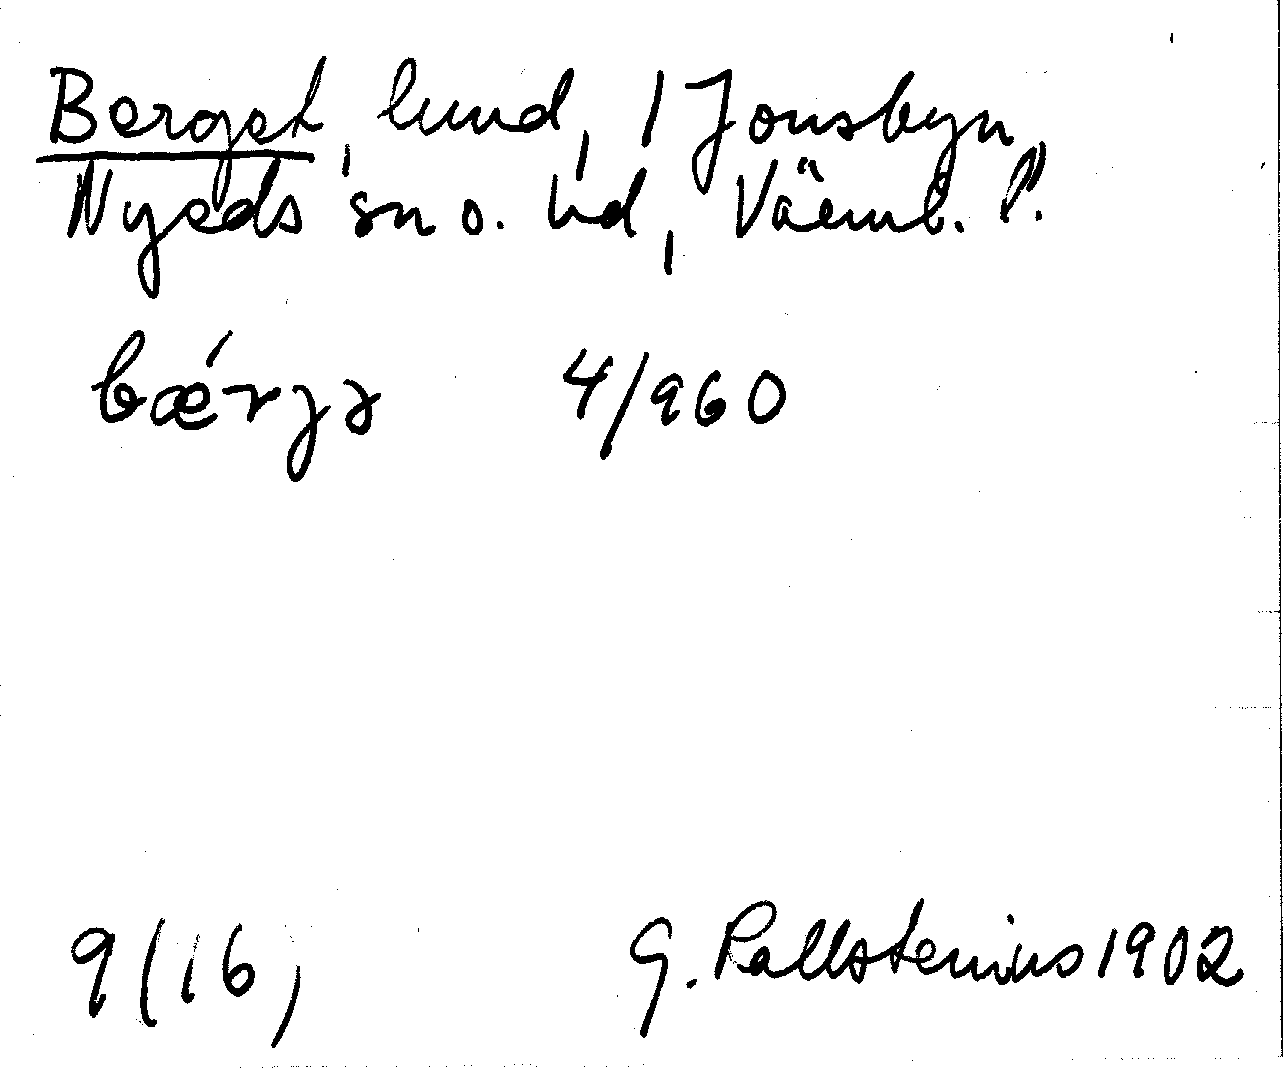 Berget, lund, 1 Jonsbyn,
Nyeds sn o. hd, Värml. l.
bǽrjə 4/960
9(16)
G. Kallstenius 1902